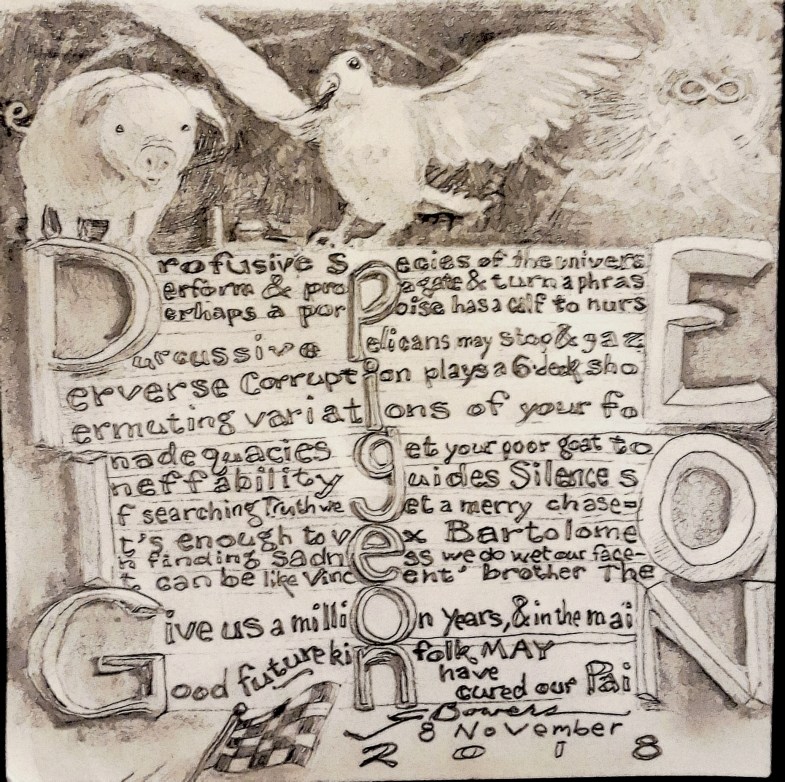 Profusive SPecies of the universE
erform & pro agate & turn a phras
erhaps a por oise has a calf to nurs
urcussive elicans may stop & gaz
erverse Corruption plays a 6-deck sho
ermuting variat ons of your fo
Inadequacies get your poor goat toO
neffability uides Silence s
f searching Truth we et a merry chase=
t's enough to vex Bartolome
n finding Sadn ss we do wet our face-
t can be like Vinc ent's brother The
Give us a million years, & in the maiN
Good future kinfolk MAY
have
cured our Pai
S Bowers
8 November
2018